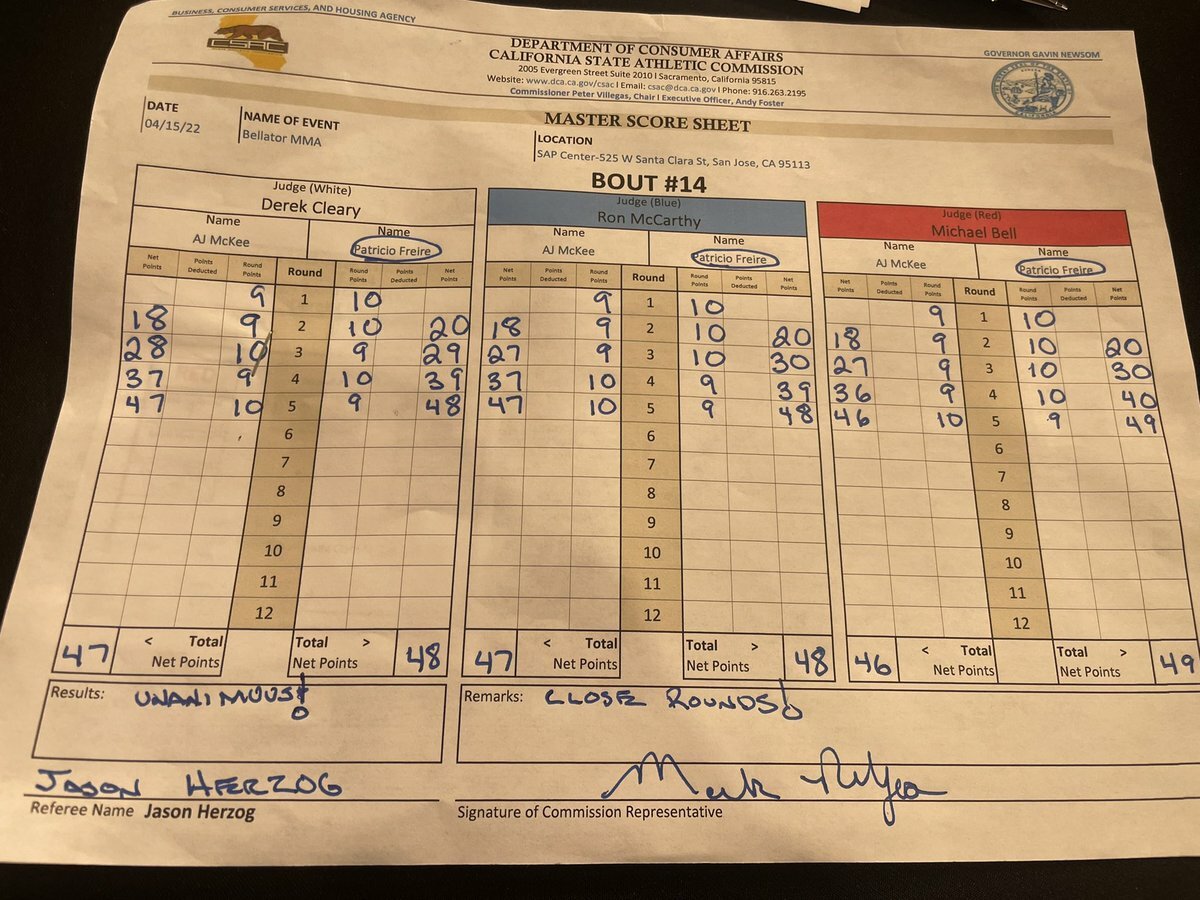 BUSINESS, CONSUMER SERVICES, AND HOUSING AGENCY
CSAC
DEPARTMENT OF CONSUMER AFFAIRS
CALIFORNIA STATE ATHLETIC COMMISSION
2005 Evergreen Street Suite 2010 I Sacramento, California 95815
Website: www.dca.ca.gov/csac I Email: csac@dca.ca.gov I Phone: 916.263.2195
Commissioner Peter Villegas, Chair I Executive Officer, Andy Foster
GOVERNOR GAVIN NEWSOM
MASTER SCORE SHEET
DATE
04/15/22
NAME OF EVENT
Bellator MMA
LOCATION
SAP Center-525 W Santa Clara St, San Jose, CA 95113
BOUT #14
Judge (White)
Derek Cleary
Name Name
AJ McKee Patricio Freire
Net Points Points Deducted Round Points Round Round Points Points Deducted Net Points
9 1 10
18 9 2 10 20
28 10 3 9 29
37 9 4 10 39
47 10 5 9 48
6
7
8
9
10
11
12
47 < Total Net Points Total > Net Points 48
Judge (Blue)
Ron McCarthy
Name Name
AJ McKee Patricio Freire
Net Points Points Deducted Round Points Round Round Points Points Deducted Net Points
9 1 10
18 9 2 10 20
27 9 3 10 30
37 10 4 9 39
47 10 5 9 48
6
7
8
9
10
11
12
47 < Total Net Points Total > Net Points 48
Judge (Red)
Michael Bell
Name Name
AJ McKee Patricio Freire
Net Points Points Deducted Round Points Round Round Points Points Deducted Net Points
9 1 10
18 9 2 10 20
27 9 3 10 30
36 9 4 10 40
46 10 5 9 49
6
7
8
9
10
11
12
46 < Total Net Points Total > Net Points 49
Results: UNANIMOUS!
Remarks: CLOSE ROUNDS!
JASON HERZOG
Referee Name Jason Herzog
Mark
Signature of Commission Representative